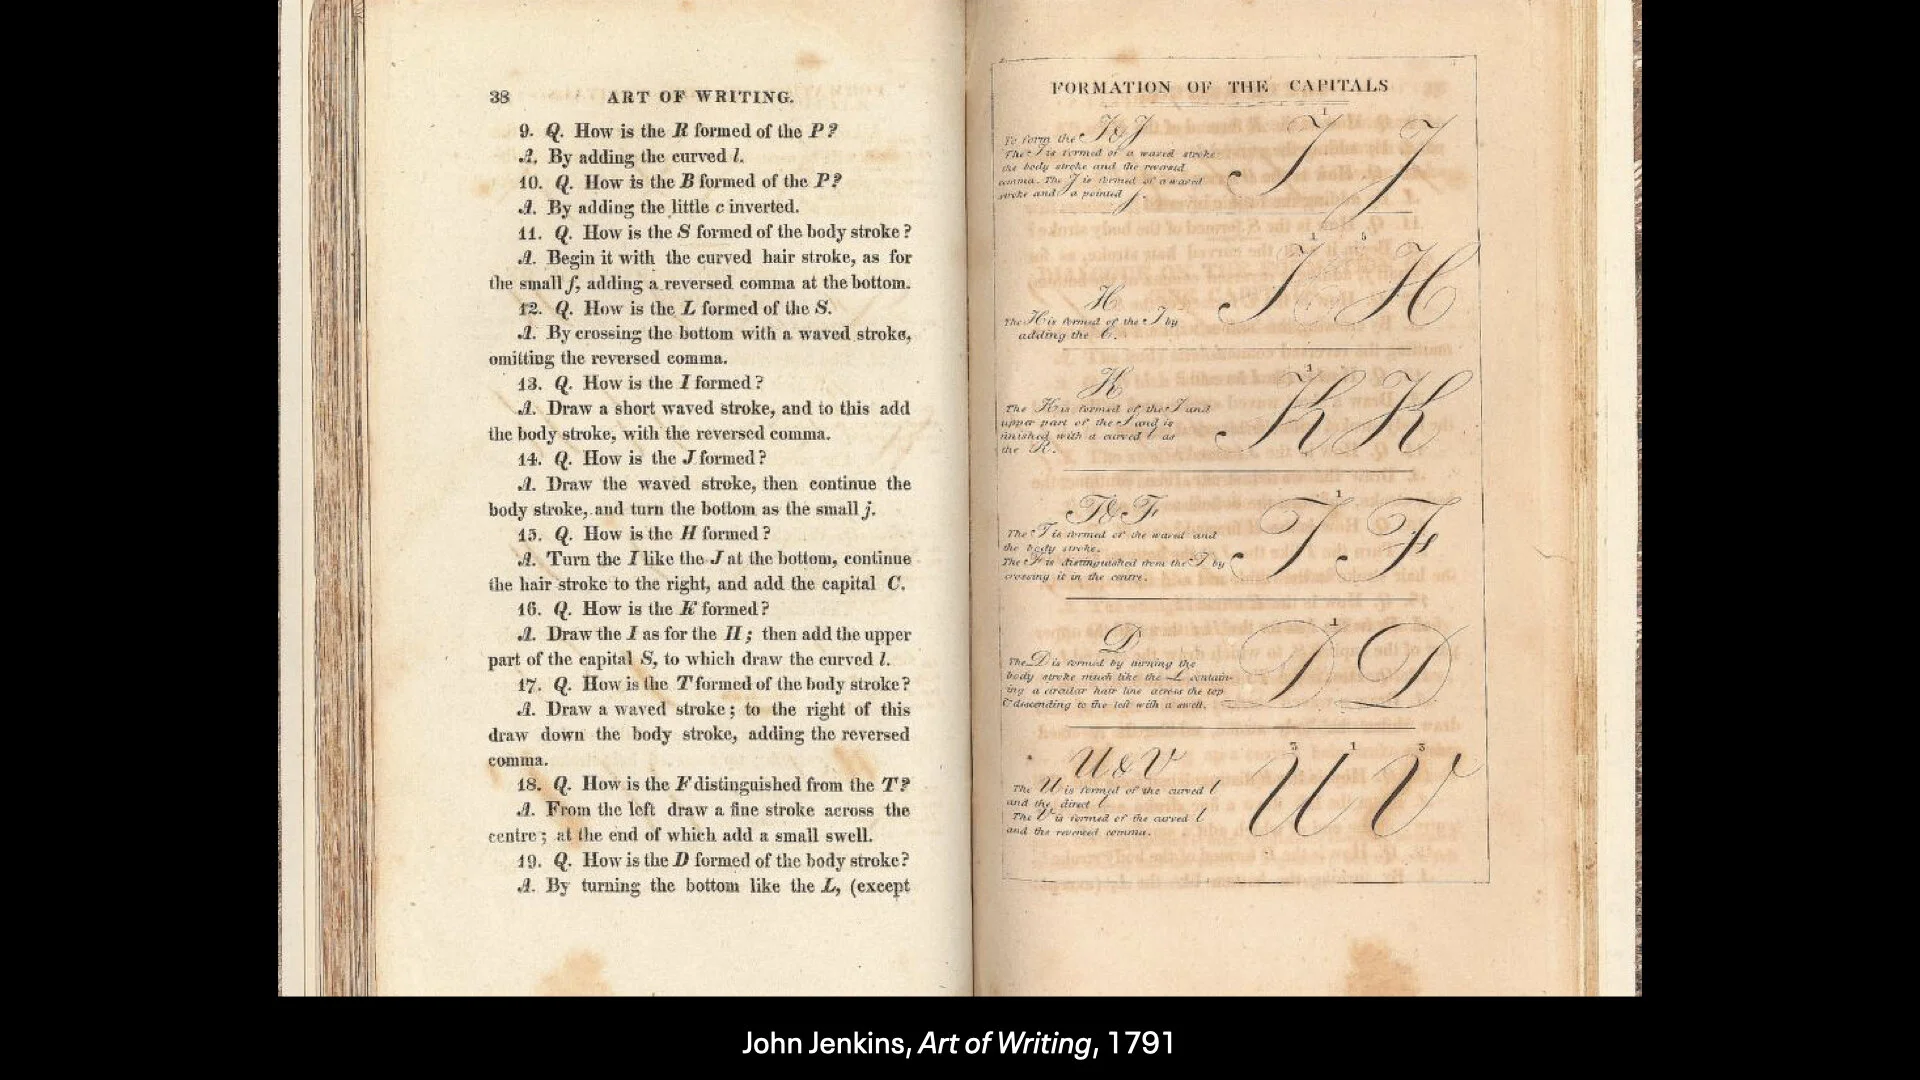 38 ART OF WRITING.
9. Q. How is the R formed of the P?
A. By adding the curved l.
10. Q. How is the B formed of the P?
A. By adding the little c inverted.
11. Q. How is the S formed of the body stroke?
A. Begin it with the curved hair stroke, as for
the small f, adding a reversed comma at the bottom.
12. Q. How is the L formed of the S.
A. By crossing the bottom with a waved stroke,
omitting the reversed comma.
13. Q. How is the I formed?
A. Draw a short waved stroke, and to this add
the body stroke, with the reversed comma.
14. Q. How is the J formed?
A. Draw the waved stroke, then continue the
body stroke, and turn the bottom as the small j.
15. Q. How is the H formed?
A. Turn the I like the J at the bottom, continue
the hair stroke to the right, and add the capital C.
16. Q. How is the K formed?
A. Draw the I as for the H; then add the upper
part of the capital S, to which draw the curved l.
17. Q. How is the T formed of the body stroke?
A. Draw a waved stroke; to the right of this
draw down the body stroke, adding the reversed
comma.
18. Q. How is the F distinguished from the T?
A. From the left draw a fine stroke across the
centre; at the end of which add a small swell.
19. Q. How is the D formed of the body stroke?
A. By turning the bottom like the L, (except
FORMATION OF THE CAPITALS
To form the I & J
The I is formed of a waved stroke
the body stroke and the reversed
comma. The J is formed of a waved
stroke and a pointed j.
1
I J
H
The H is formed of the I by
adding the C.
1 5
I H
K
The K is formed of the I and
upper part of the S and is
finished with a curved l as
the R.
1
K K
T & F
The T is formed of the waved and
the body stroke.
The F is distinguished from the T by
crossing it in the centre.
1
T F
D
The D is formed by turning the
body stroke much like the L contain-
ing a circular hair line across the top
& descending to the left with a swell.
1
D D
U & V
The U is formed of the curved l
and the direct l
The V is formed of the curved l
and the reversed comma.
3 1 3
U V
John Jenkins, Art of Writing, 1791